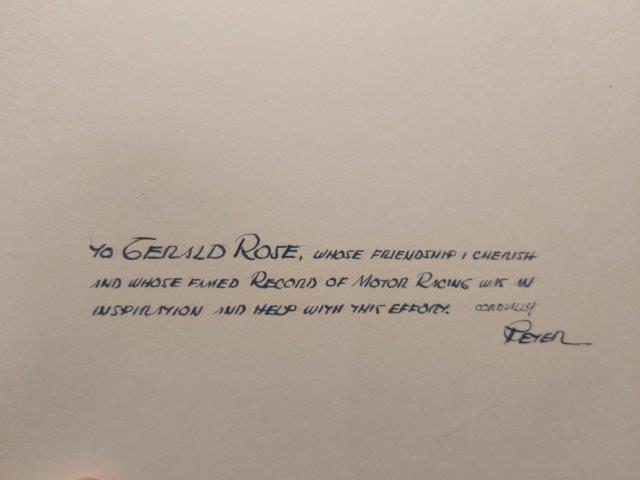 To GERALD ROSE, WHOSE FRIENDSHIP I CHERISH
AND WHOSE FAMED RECORD OF MOTOR RACING WAS AN
INSPIRATION AND HELP WITH THIS EFFORT. CORDIALLY
PETER